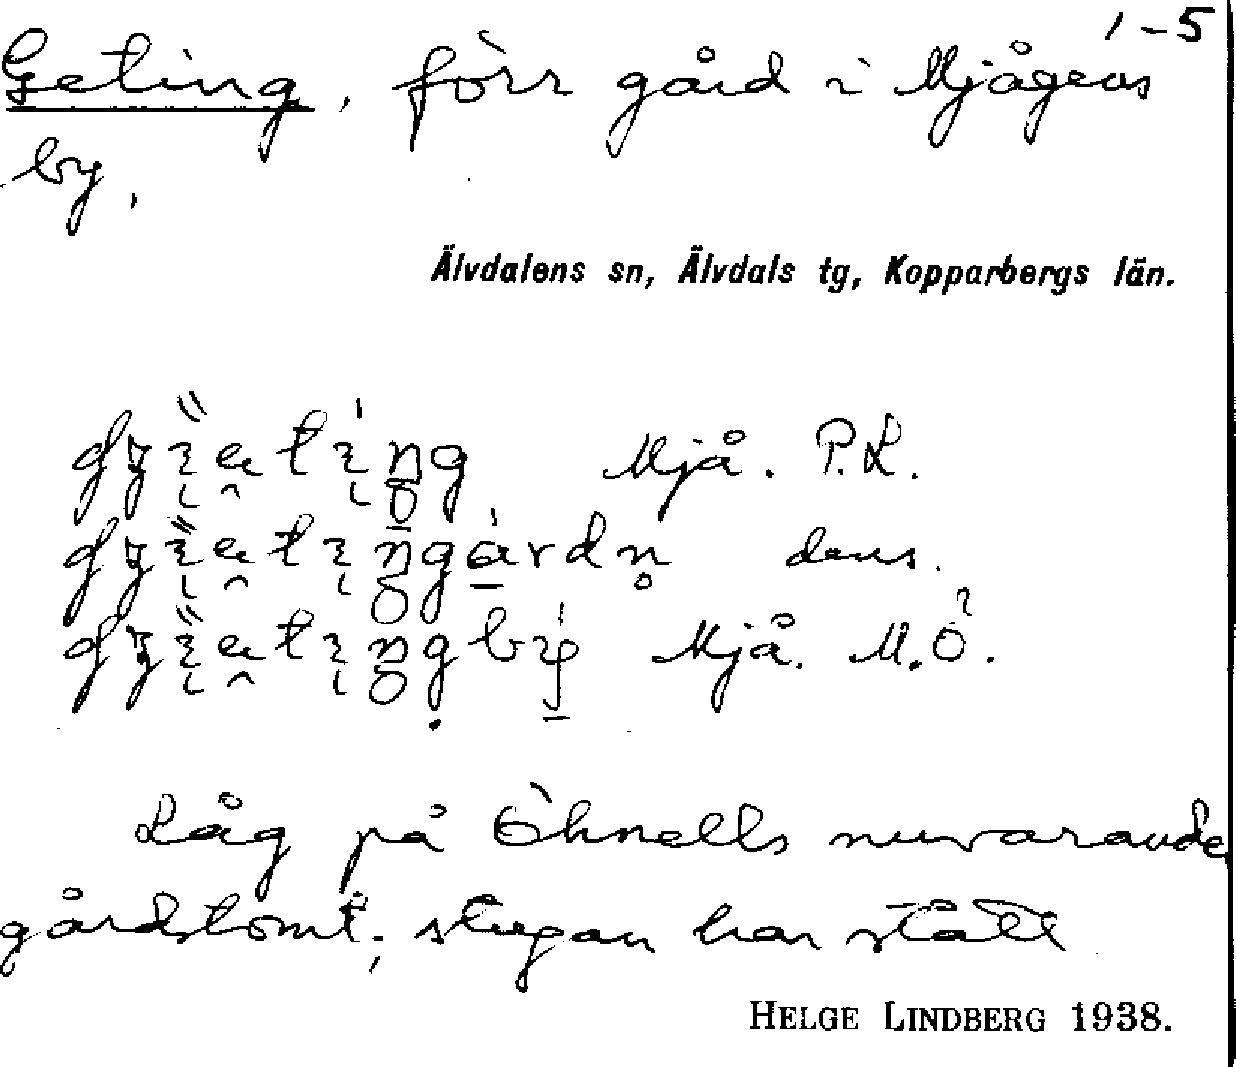 1-5
Geting, förr gård i Mjågens
by.
Älvdalens sn, Älvdals tg, Kopparbergs län.
Mjå. P.L.
dens.
Mjå. M.Ö.
Låg på Öhnells nuvarande
gårdstomt; stugan har stått
HELGE LINDBERG 1938.